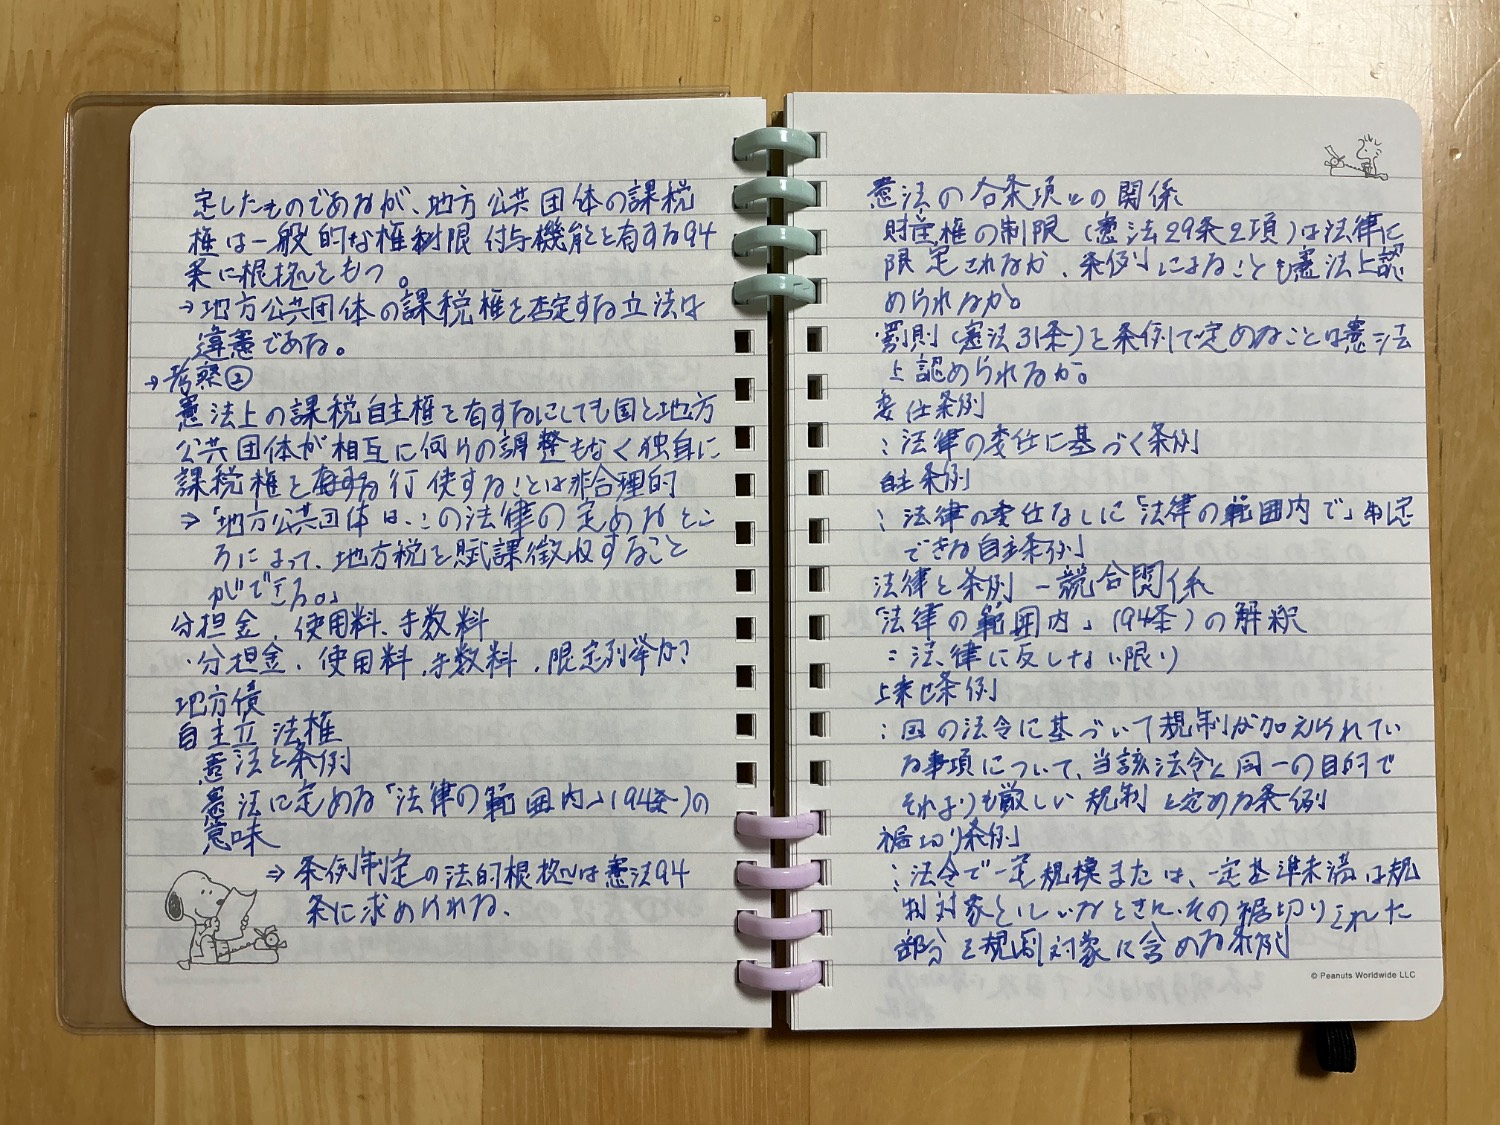 定したものであるが、地方公共団体の課税
権は一般的な権利限付与機能を有する94
条に根拠をもつ。
→地方公共団体の課税権を否定する立法は
違憲である。
→考察②
憲法上の課税自主権を有するにしても国と地方
公共団体が相互に何らの調整もなく独自に
課税権を行使することは非合理的
⇒「地方公共団体は、この法律の定めるとこ
ろによって、地方税を賦課徴収すること
ができる。」
分担金、使用料、手数料
・分担金、使用料、手数料、限定列挙か?
地方債
自主立法権
憲法と条例
憲法に定める「法律の範囲内」(94条)の
意味
⇒条例制定の法的根拠は憲法94
条に求められる、
憲法の各条項との関係
財産権の制限(憲法29条2項)は法律に
限定されるか、条例によることも憲法上認
められるか。
罰則(憲法31条)を条例で定めることは憲法
上認められるか。
委任条例
:法律の委任に基づく条例
自主条例
:法律の委任なしに「法律の範囲内で」制定
できる自主条例
法律と条例ー競合関係
「法律の範囲内」(94条)の解釈
:法律に反しない限り
上乗せ条例
:国の法令に基づいて規制が加えられてい
る事項について、当該法令と同一の目的で
それよりも厳しい規制を定める条例
裾切り条例
:法令で一定規模または、一定基準未満は規
制対象としないとされ、その裾切りされた
部分を規制対象に含める条例
© Peanuts Worldwide LLC